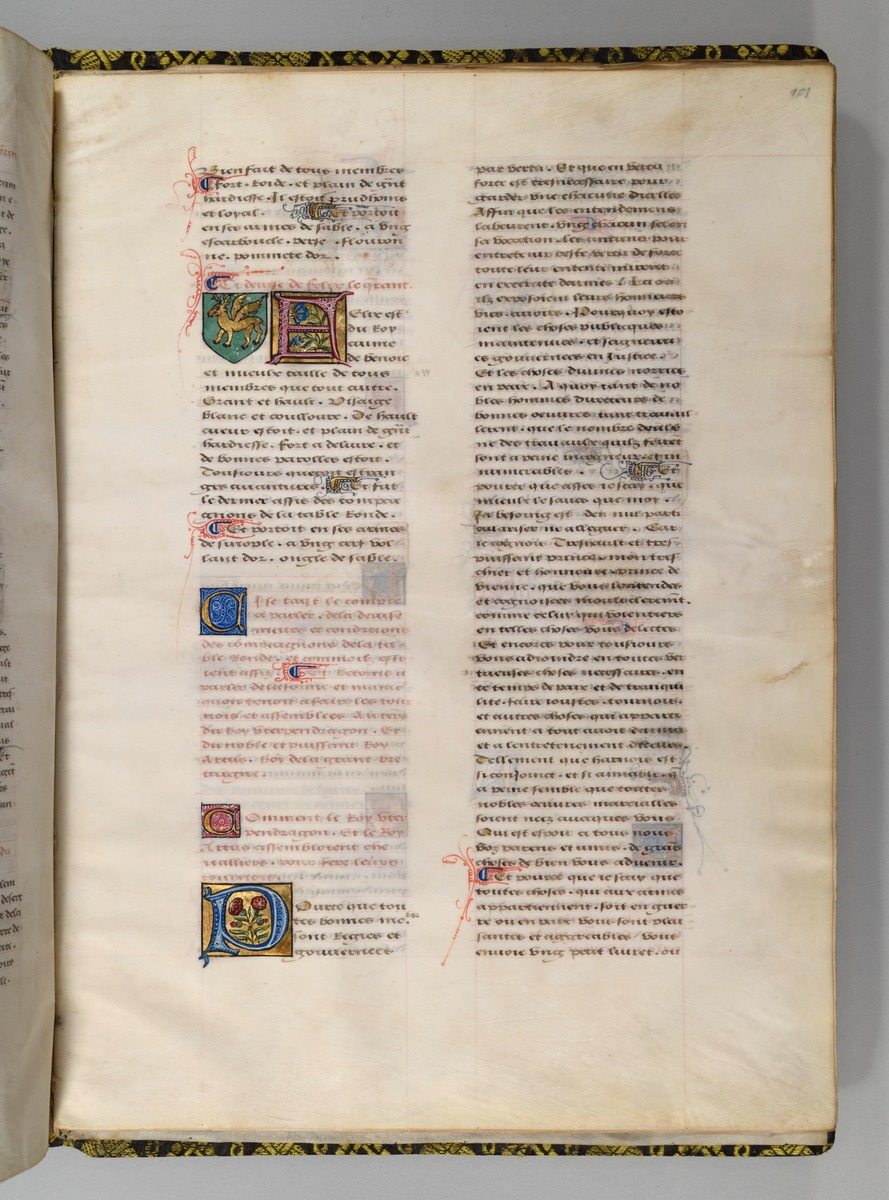 101
Bien fait de tous membres
fort. Roide. et plain de grãt
hardiesse. Il estoit prudhoms
et loyal. Et portoit
en ses armes de sable. a ung
escarboucle. verse. flouron
ne. pommete dor.
La deuise de felix le querant.
Elix est
du Roy
aume
de benoic
et mieulx taille de tous
membres que tout autre.
Grant et hault. Visaige
blanc et couloure. De hault
cueur estoit. et plain de grãt
hardiesse. Fort a deliure. et
de bonnes parolles estoit.
Tousiours queroit estran
ges auantures. Et fut
le dernier assis des compai
gnons de la table Ronde.
Et portoit en ses armes
de sinople. a ung cerf vol
lant dor. ongle de sable.
Cy se taist le compte
a parler. de la deuise
meurs et condicions
des compaignons de la ta
ble Ronde. et comme ilz
Et Retourne a
parler de la forme et manie
quon tenoit a faire les tour
nois et assemblees Au temps
du Roy vterpendragon. Et
du noble et puissant Roy
Artus. Roy de la grant bre
taigne.
Comment le Roy vter
pendragon. Et le Roy
Artus assembloient che
ualliers. pour fere leurs
tournois.
Pource que tou
tes bonnes me.
sont Regies et
gouuernees
par vertu. Et que en vertu
force est tresnecessaire pour
garder une chascune dicelles
Affin que les entendemens
labeurent. ung chacun selon
sa vocation. les anciens pour
entretenir ceste vertu de force
toute leur entente mirent
en exercite darmes. La ou
ilz exposoient leurs honneurs
vies. auoirs. Pourquoy esto
ient les choses publicques
maintenues. et seigneuri
es gouuernees en Justice.
Et les choses diuines norries
en paix. A quoy tant de no
bles hommes directeurs de
bonnes oeuures tant trauail
lerent. que le nombre de la be
ne des trauaulx quilz feirent
sont a peine incogneuz. et in
numerables. Et
pource que asses ie scay. que
mieulx le saues que moy.
Ja besoing est den nul parti
culariser ne alleguer. Car
ie cognoie Treshault et tres
puissant prince. mon tres
chier et honnoure prince de
vienne. que vous lentendes
et cognoisses moult clerement.
comme celuy qui voulentiers
en telles choses vous delectes
Et encores pour tousiours
vous adioindre en toutes ver
tueuses choses necessaires. en
ce temps de paix et de tranqui
lite. faire ioustes. tournois.
et autres choses qui appar
tiennent a tout auoir darmes
et a lentretenement dicelles.
Tellement que harnois est
si conioinct. et si amiable. q̃
a peine semble que toutes
nobles oeuures marcialles
soient nees auecques vous
Qui est espoir a tous nous
voz parens et amis. de grãs
choses de bien vous aduenir.
Et pource que ie scay que
toutes choses. qui aux armes
appartiennent. soit en guer
re ou en paix vous sont plai
santes et aggreables. vous
enuoie ung petit liuret. ou